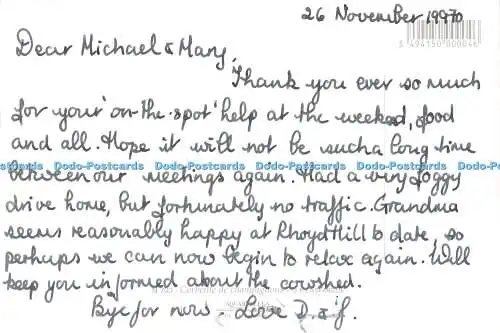 26 November 1997
3 494150 000046
Dear Michael & Mary,
Thank you ever so much
for your 'on-the-spot' help at the weeked, food
and all. Hope it will not be such a long time
Dodo-Postcards Dodo-Postcards Dodo-Postcards Dodo-Postcards Dodo-Postcards
between our meetings again. Had a very foggy
drive home, but fortunately no traffic. Grandma
seems reasonably happy at Rhoyd Hill to date, so
perhaps we can now begin to relax again. Will
keep you informed about the cowshed.
Bye for now - Love D. & J.